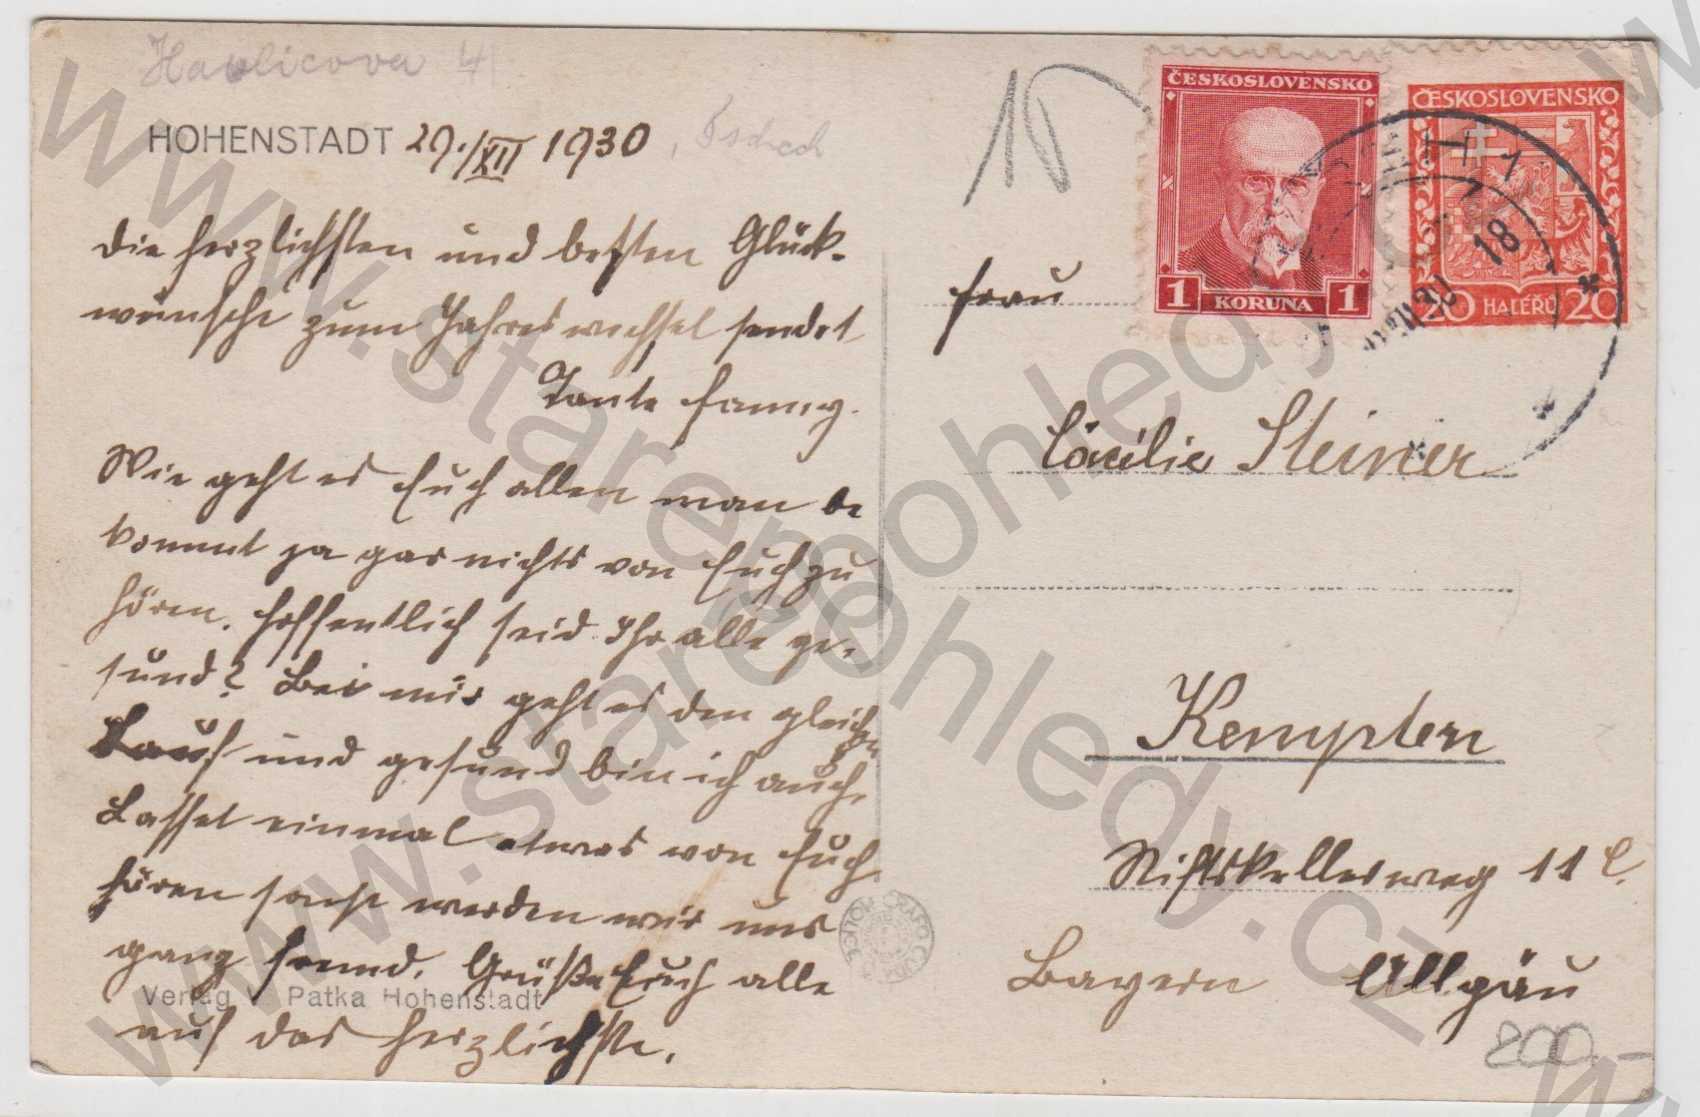 Havlicova 4
HOHENSTADT 29./XII 1930
, Tschech
Die herzlichsten und besten Glück-
wünsche zum Jahreswechsel sendet
Tante Fanny.
Wie geht es Euch allen man be
kommt ja gar nichts von Euch zu
hören. Hoffentlich seid Ihr alle ge-
sund? Bei mir geht es den gleichen
Lauf und gesund bin ich auch.
Lasset einmal etwas von Euch
hören sonst werden wir uns
ganz fremd. Grüße Euch alle
auf das herzlichste.
Verlag V. Patka Hohenstadt
ČESKOSLOVENSKO
1 KORUNA 1
ČESKOSLOVENSKO
20 HALÉŘŮ 20
18
Frau
Cäcilie Steiner
Kempten
Stiftskellerweg 11 C.
Bayern Allgäu
200.-
www.starepohledy.cz
www.starepohledy.cz